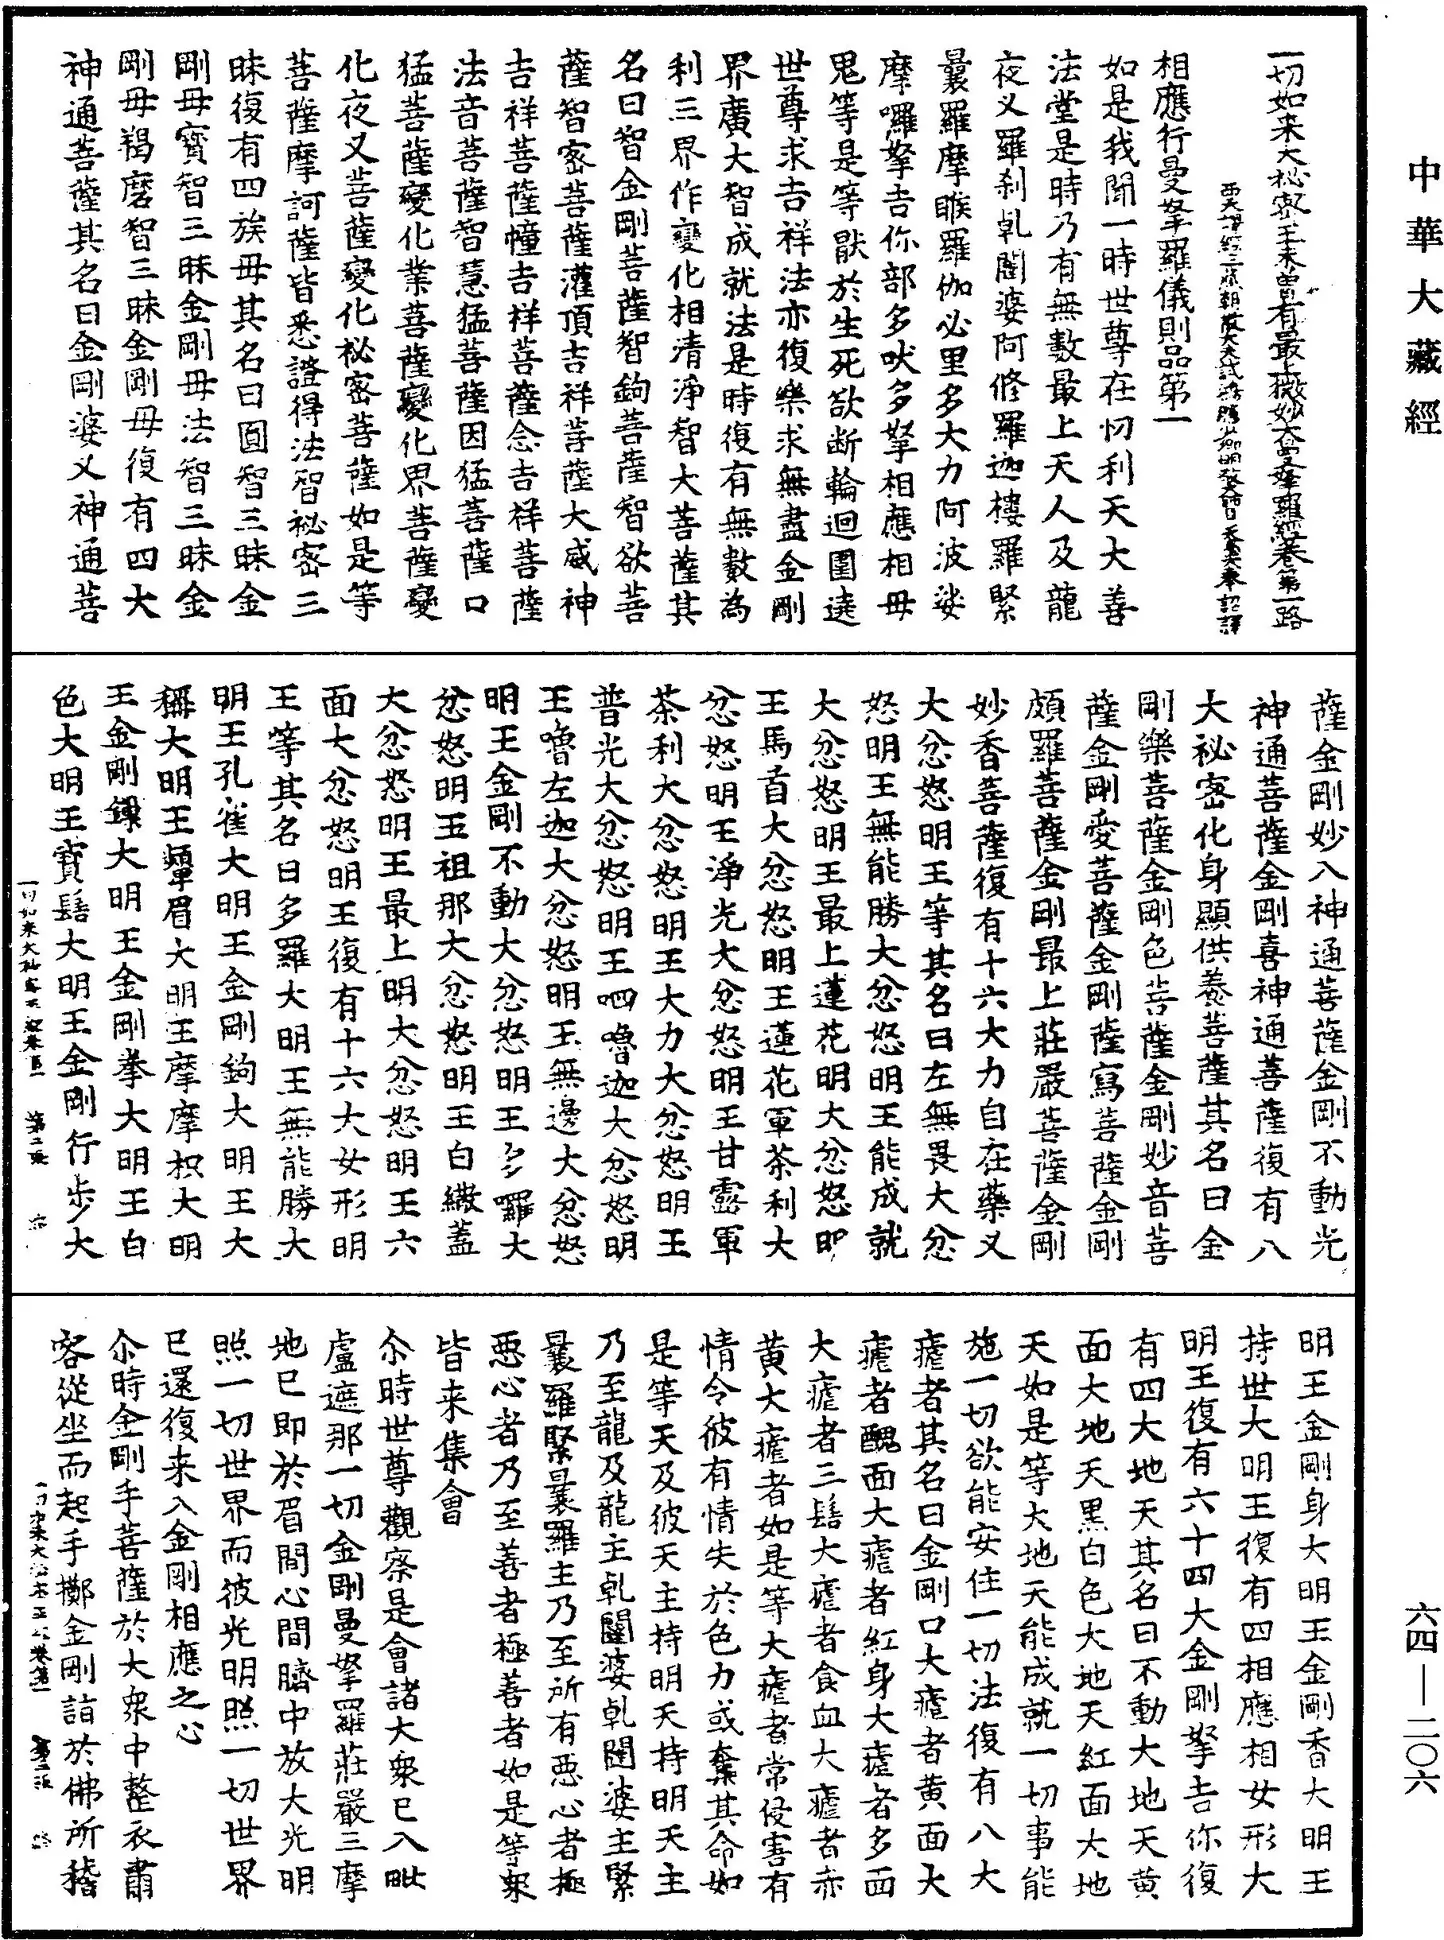 中華大藏經
一切如來大秘密王未曾有最上微妙大曼拏羅經卷第一 路
西天譯經三藏朝散大夫試鴻臚少卿明教大師臣天息災奉 詔譯
相應行曼拏羅儀則品第一
如是我聞一時世尊在忉利天大善
法堂是時乃有無數最上天人及龍
夜叉羅刹乹闥婆阿修羅迦樓羅緊
曩羅摩睺羅伽必里多大力阿波娑
摩囉拏吉你部多吠多拏相應相毋
鬼等是等猒於生死欲断輪迴圍遶
世尊求吉祥法亦復樂求無盡金剛
界廣大智成就法是時復有無數為
利三界作變化相清淨智大菩薩其
名曰智金剛菩薩智鉤菩薩智欲菩
薩智密菩薩灌頂吉祥菩薩大威神
吉祥菩薩幢吉祥菩薩念吉祥菩薩
法音菩薩智慧猛菩薩因猛菩薩口
猛菩薩變化業菩薩變化界菩薩變
化夜叉菩薩變化秘密菩薩如是等
菩薩摩訶薩皆悉證得法智秘密三
昧復有四族毋其名曰圓智三昧金
剛毋寶智三昧金剛毋法智三昧金
剛毋羯磨智三昧金剛毋復有四大
神通菩薩其名曰金剛婆叉神通菩
薩金剛妙入神通菩薩金剛不動光
神通菩薩金剛喜神通菩薩復有八
大秘密化身顯供養菩薩其名曰金
剛樂菩薩金剛色菩薩金剛妙音菩
薩金剛愛菩薩金剛薩寫菩薩金剛
頗羅菩薩金剛最上莊嚴菩薩金剛
妙香菩薩復有十六大力自在藥叉
大忿怒明王等其名曰左無畏大忿
怒明王無能勝大忿怒明王能成就
大忿怒明王最上蓮花明大忿怒明
王馬首大忿怒明王蓮花軍荼利大
忿怒明王淨光大忿怒明王甘露軍
荼利大忿怒明王大力大忿怒明王
普光大忿怒明王呬嚕迦大忿怒明
王嚕左迦大忿怒明王無邊大忿怒
明王金剛不動大忿怒明王多囉大
忿怒明王祖那大忿怒明王白繖蓋
大忿怒明王最上明大忿怒明王六
面大忿怒明王復有十六大女形明
王等其名曰多羅大明王無能勝大
明王孔雀大明王金剛鉤大明王大
稱大明王顰眉大明王摩摩枳大明
王金剛鏁大明王金剛拳大明王白
色大明王寶髻大明王金剛行步大
一切如來大秘密王經卷第一 第二張 路
明王金剛身大明王金剛香大明王
持世大明王復有四相應相女形大
明王復有六十四大金剛拏吉你復
有四大地天其名曰不動大地天黄
面大地天黑白色大地天紅面大地
天如是等大地天能成就一切事能
施一切欲能安住一切法復有八大
瘧者其名曰金剛口大瘧者黄面大
瘧者醜面大瘧者紅身大瘧者多面
大瘧者三髻大瘧者食血大瘧者赤
黄大瘧者如是等大瘧者常侵害有
情令彼有情失於色力或奪其命如
是等天及彼天主持明天持明天主
乃至龍及龍主乹闥婆乹闥婆主緊
曩羅緊曩羅主乃至所有惡心者極
惡心者乃至善者極善者如是等衆
皆来集會
尒時世尊觀察是會諸大衆已入毗
盧遮那一切金剛曼拏羅莊嚴三摩
地已即於眉間心間臍中放大光明
照一切世界而彼光明照一切世界
已還復来入金剛相應之心
尒時金剛手菩薩於大衆中整衣肅
容從坐而起手擲金剛詣於佛所稽
第三張 路
六四—二〇六